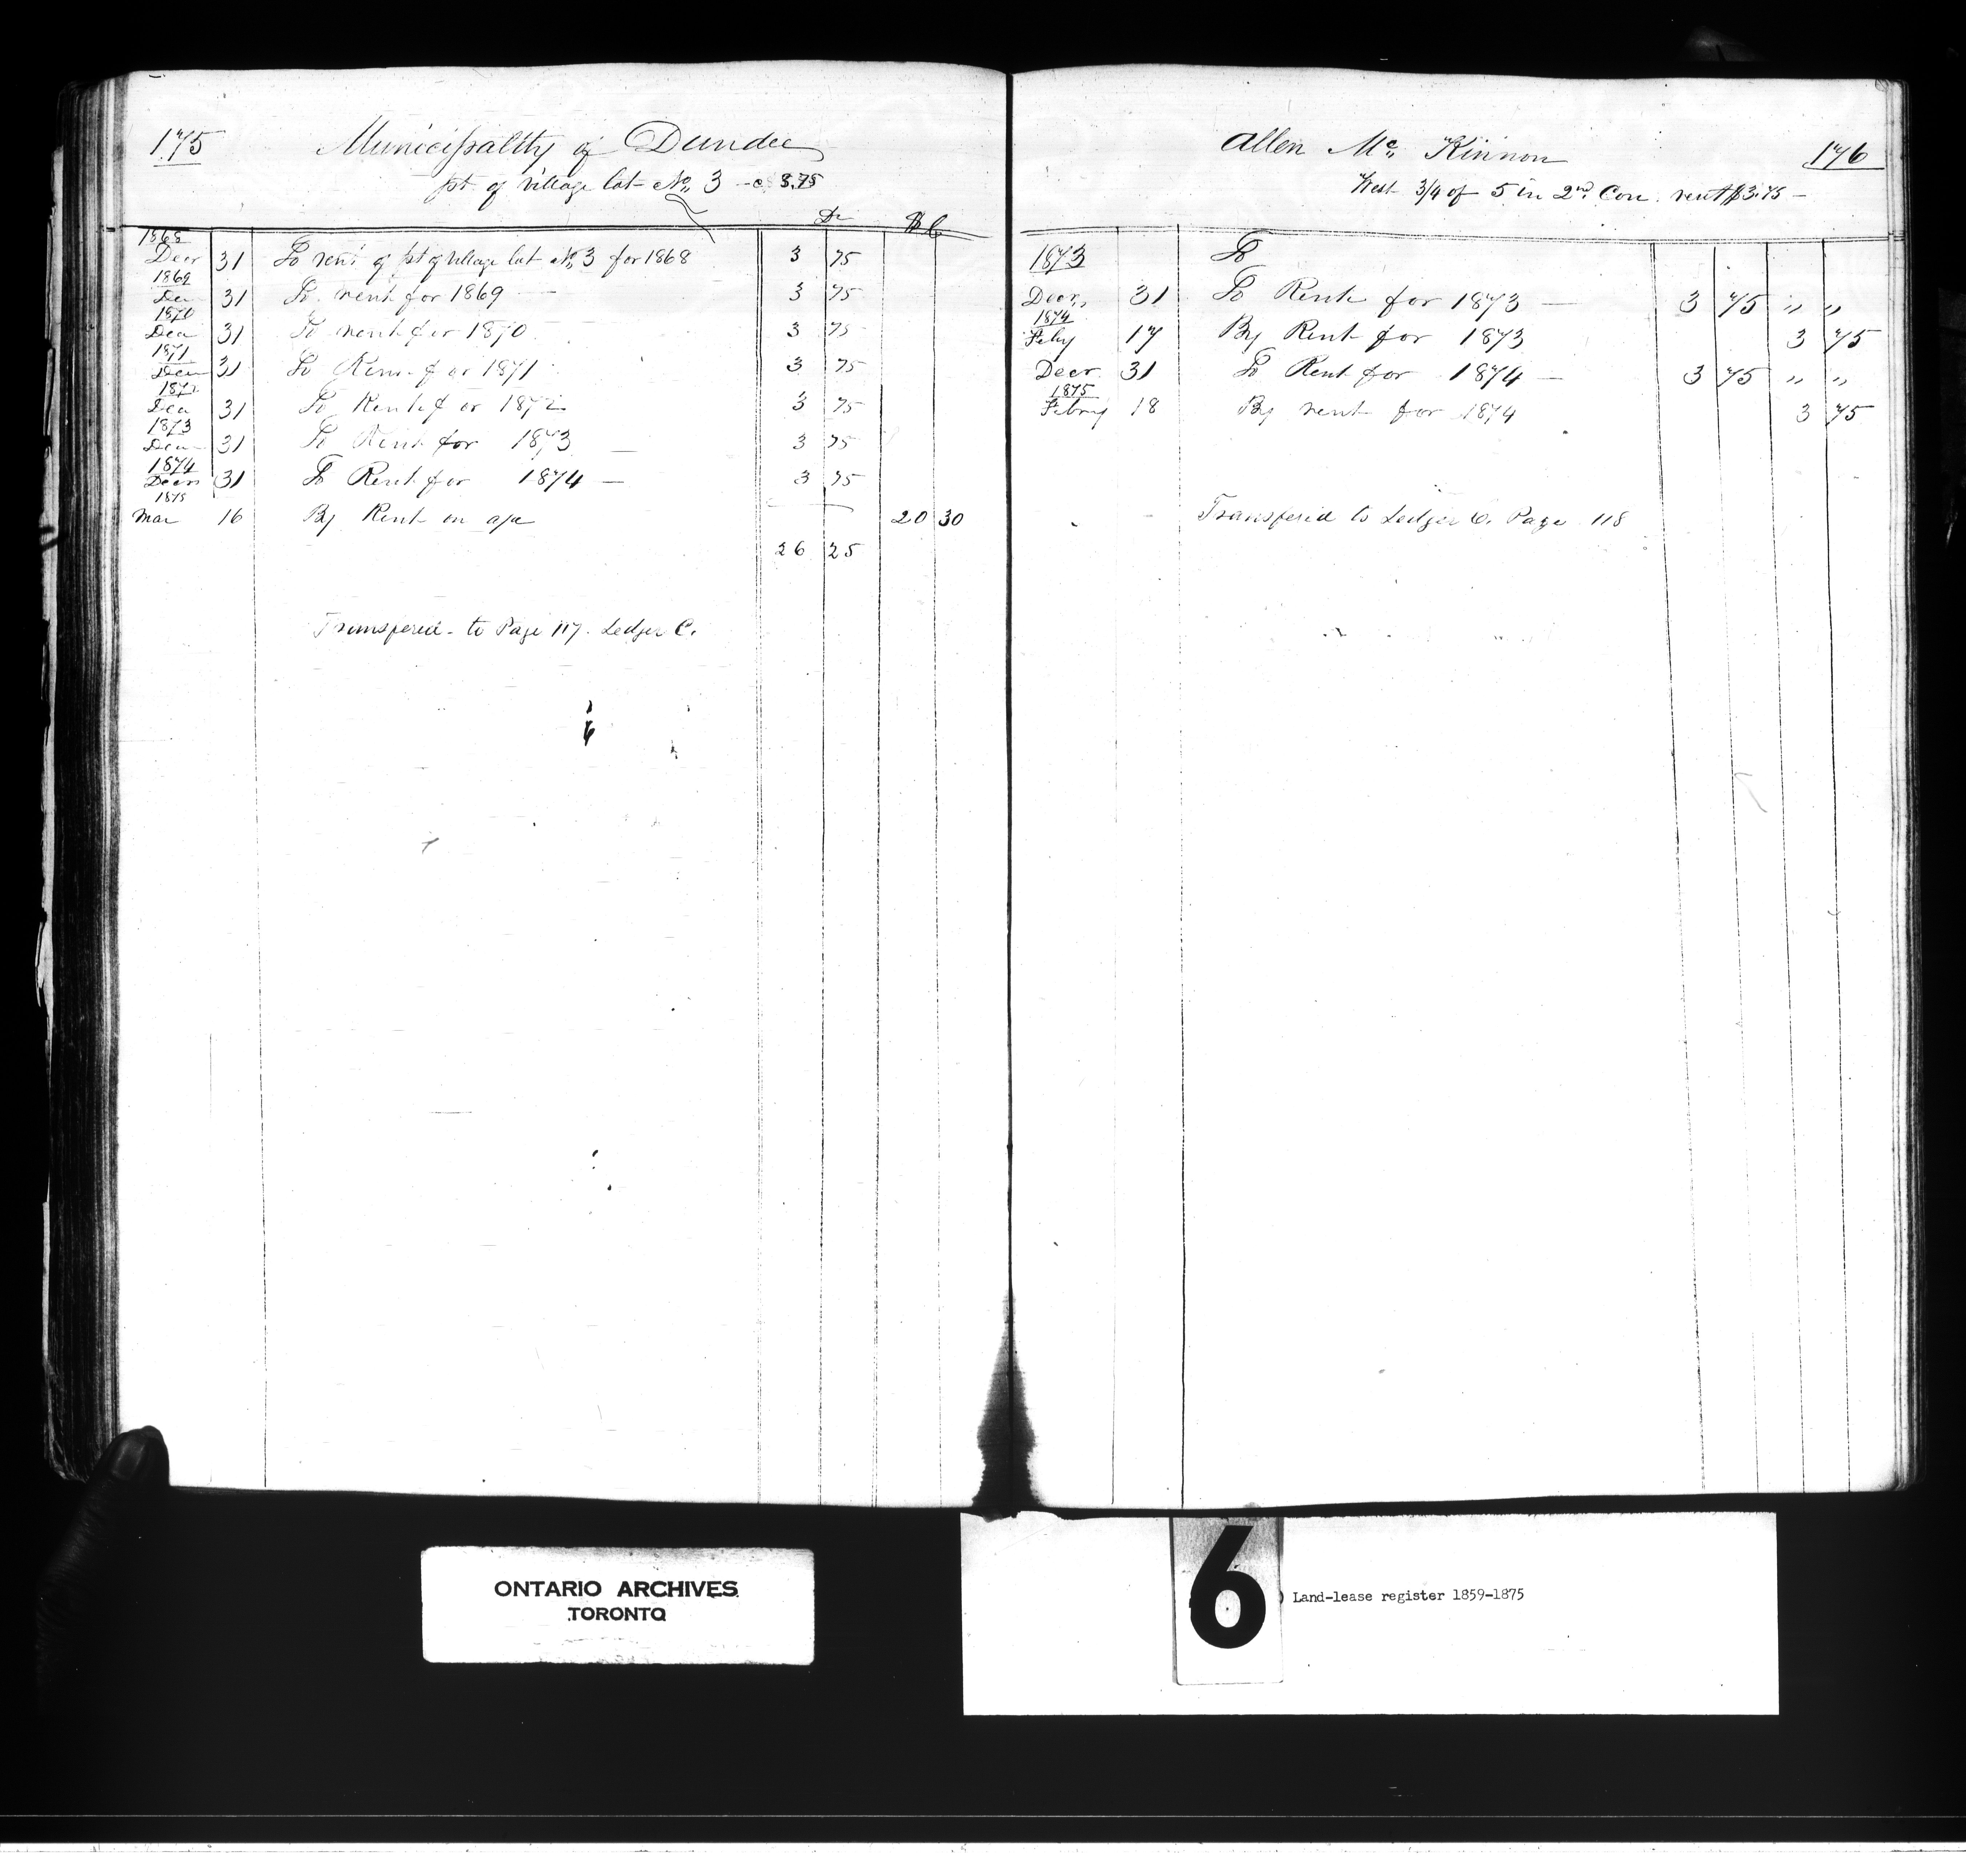 175 Municipality of Dundee
pt of village lot No 3 - c 3.75
Dr $ C
1868
Decr 31 To rent of pt of village lot No 3 for 1868 3 75
1869
Dec 31 To rent for 1869 3 75
1870
Dec 31 To rent for 1870 3 75
1871
Dec 31 To Rent for 1871 3 75
1872
Dec 31 To Rent for 1872 3 75
1873
Dec 31 To Rent for 1873 — 3 75
1874
Decr 31 To Rent for 1874 — 3 75
1875
Mar 16 By Rent on a/c 20 30
26 25
Transfered - to Page 117. Ledger C.
Allen Mc Kinnon 176
West 3/4 of 5 in 2nd Con. rent $3.75 -
1873 To
Decr 31 To Rent for 1873 — 3 75 " "
1874
Feby 17 By Rent for 1873 3 75
Decr 31 To Rent for 1874 — 3 75 " "
1875
Febry 18 By rent for 1874 3 75
Transfered to Ledger C. Page 118
ONTARIO ARCHIVES
TORONTO
6
) Land-lease register 1859-1875